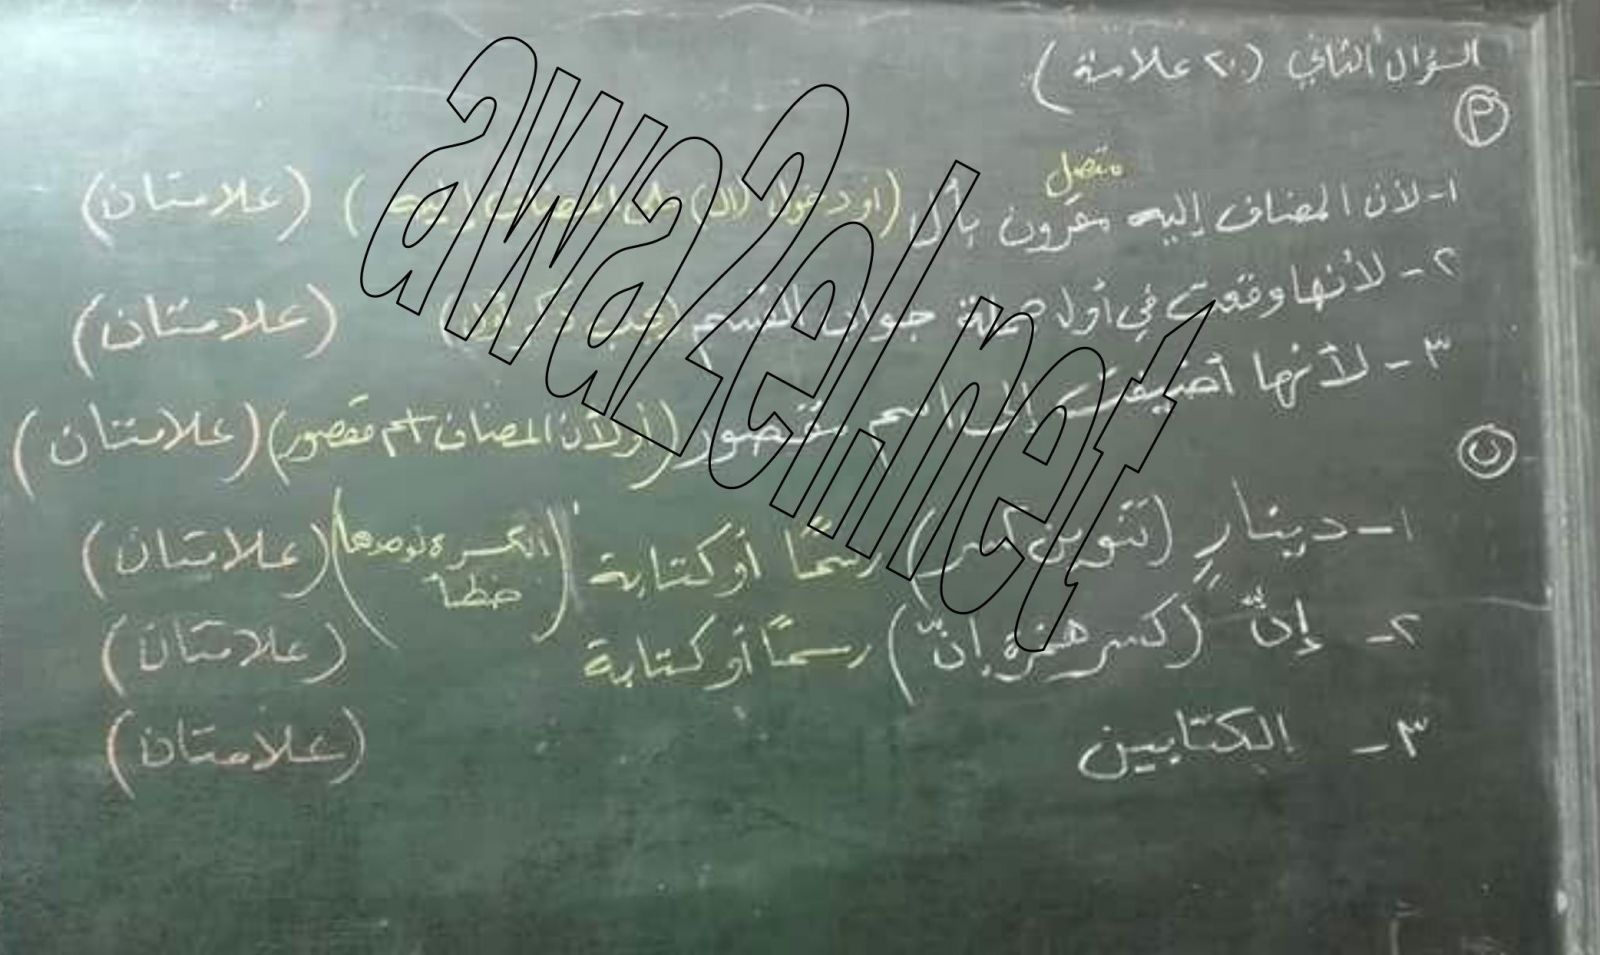 السؤال الثاني (٢٠ علامة)
أ
متصل
١- لأن المضاف إليه مقرون بأل (أو دخول (ال) على المضاف إليه) (علامتان)
٢- لأنها وقعت في أول جملة جواب القسم (علامتان)
٣- لأنها أضيفت إلى اسم مقصور (أو لأن المضاف اسم مقصور) (علامتان)
ب
١- دينارٍ (تنوين كسر) رسمًا أو كتابة (الكسرة لوحدها خطأ) (علامتان)
٢- إنّ (كسر همزة إنّ) رسمًا أو كتابة (علامتان)
٣- الكتابين (علامتان)
awa2el.net